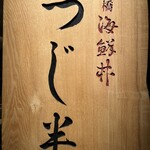 橋 海鮮丼
つじ半